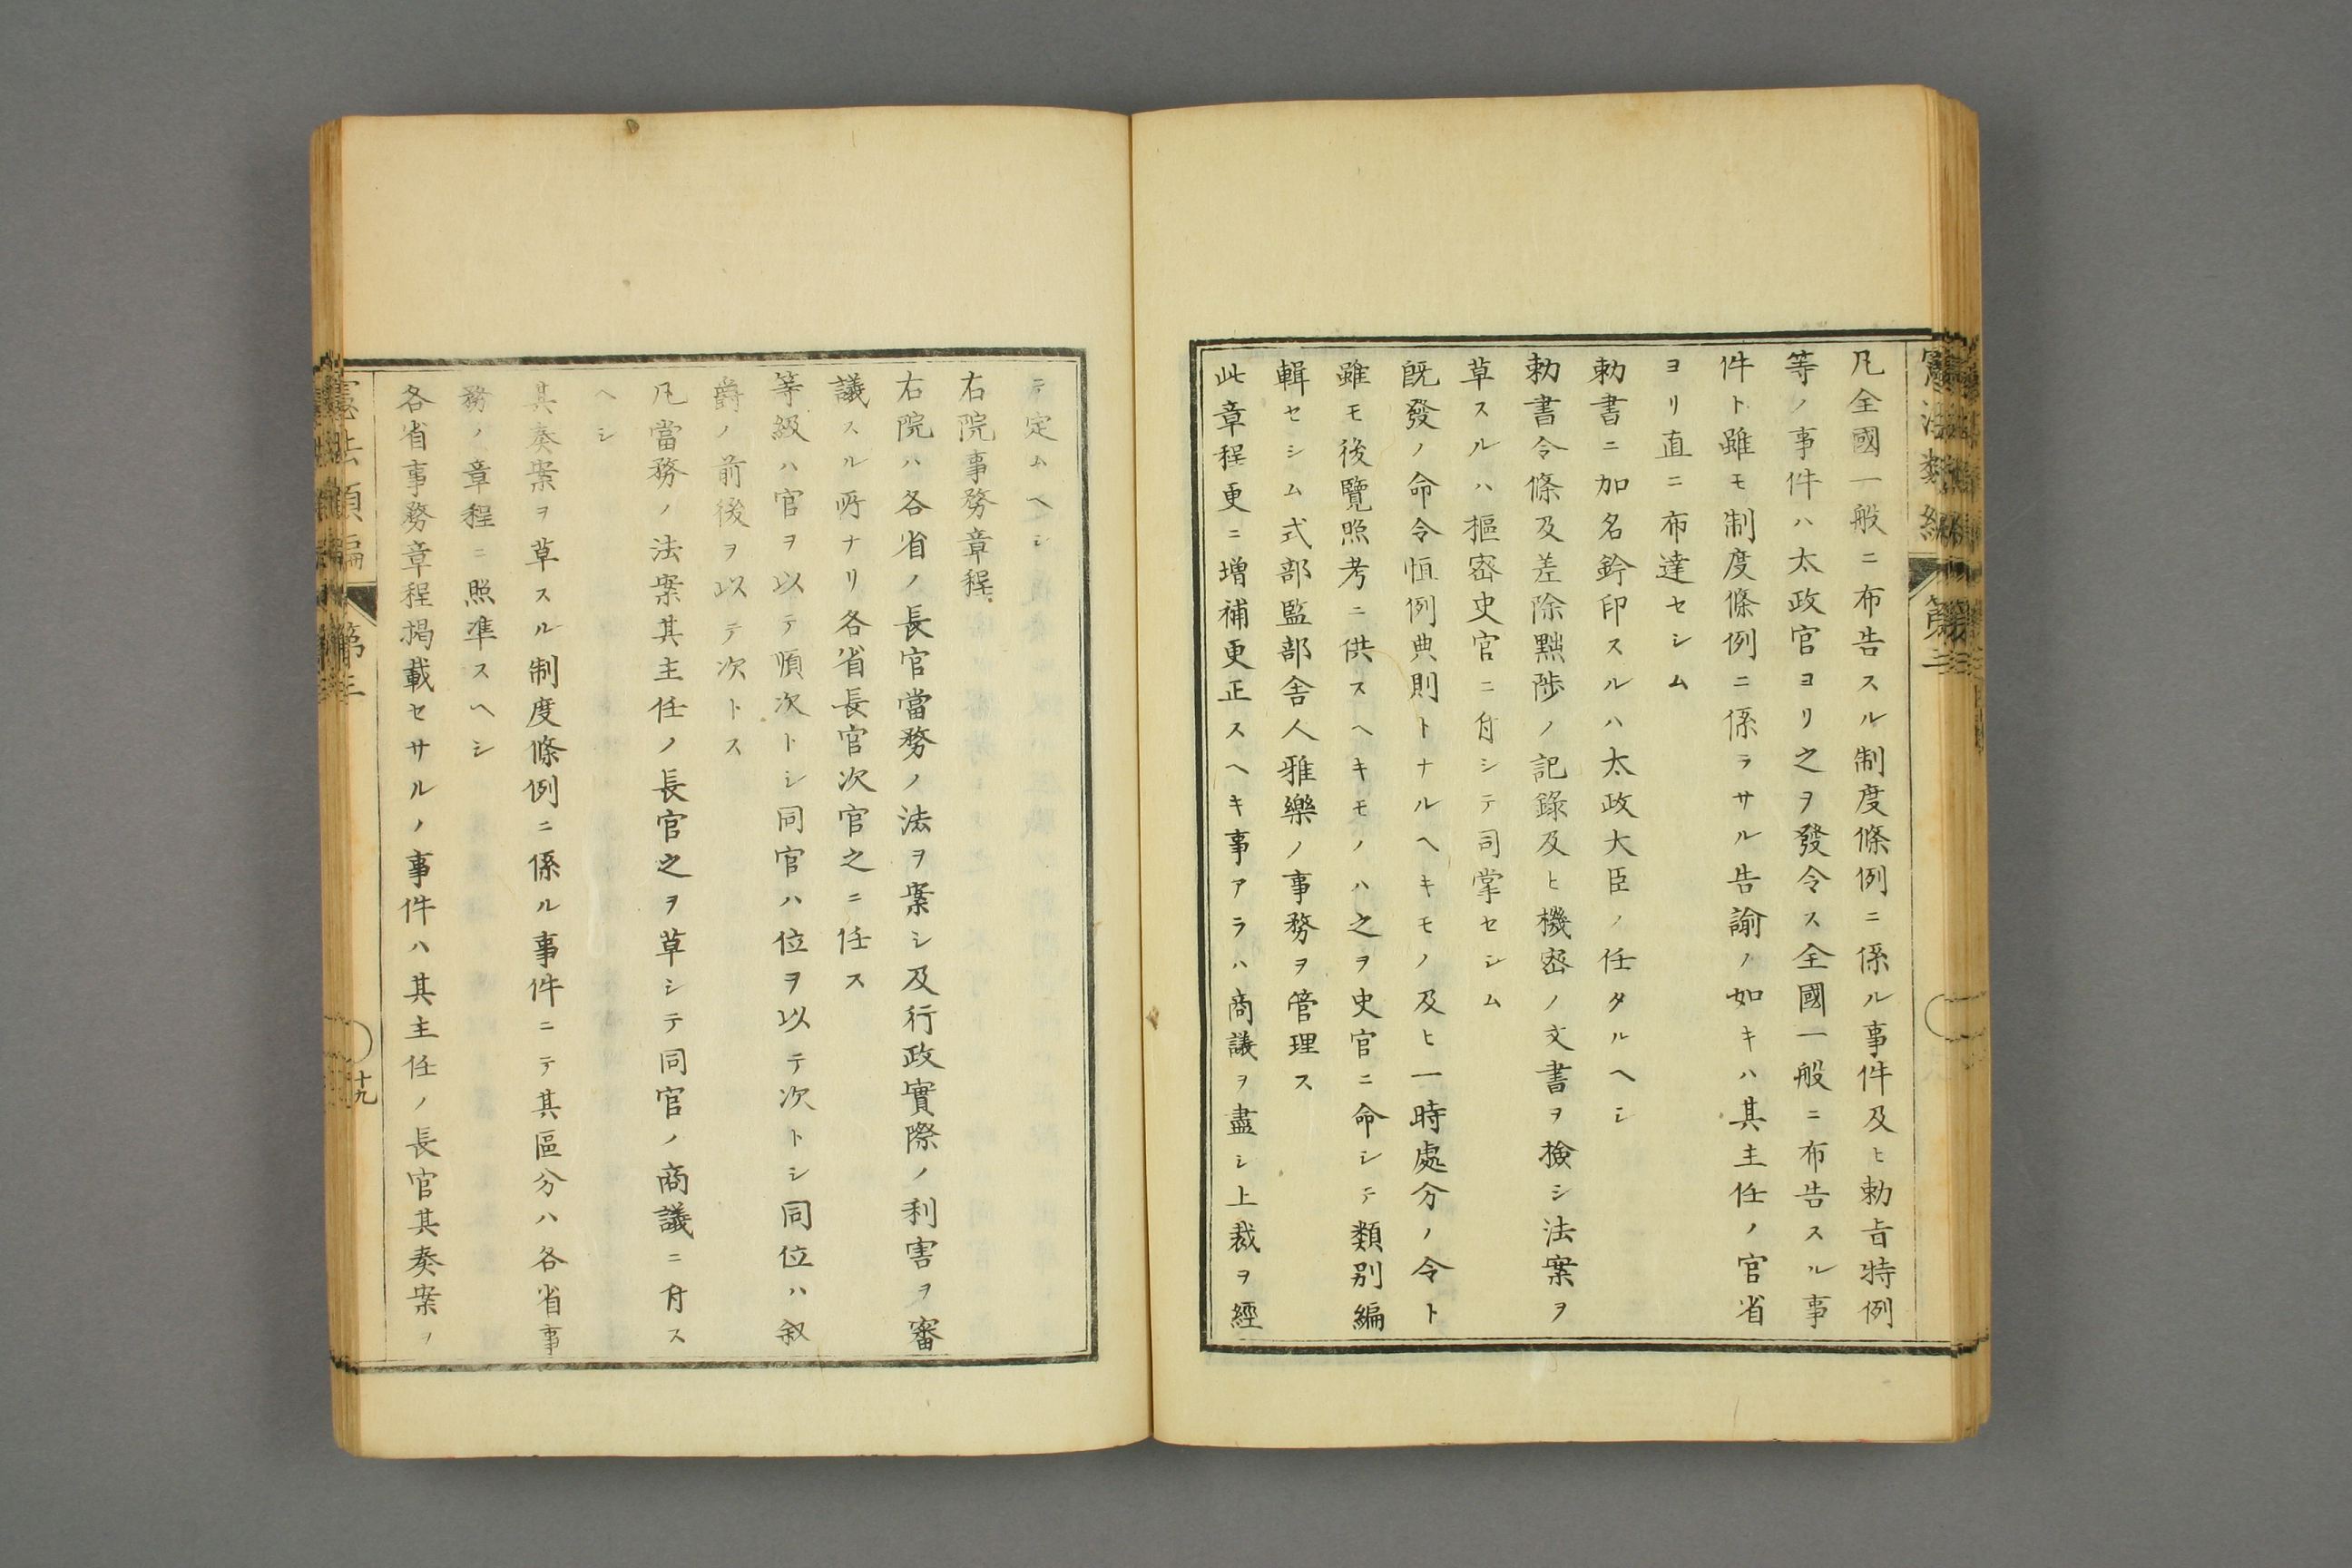 凡全國一般ニ布告スル制度條例ニ係ル事件及ヒ勅旨特例
等ノ事件ハ太政官ヨリ之ヲ發令ス全國一般ニ布告スル事
件ト雖モ制度條例ニ係ラサル告諭ノ如キハ其主任ノ官省
ヨリ直ニ布達セシム
勅書ニ加名鈐印スルハ太政大臣ノ任タルヘシ
勅書令條及差除黜陟ノ記錄及ヒ機密ノ文書ヲ撿シ法案ヲ
草スルハ樞密史官ニ付シテ司掌セシム
既發ノ命令恒例典則トナルヘキモノ及ヒ一時處分ノ令ト
雖モ後覽照考ニ供スヘキモノハ之ヲ史官ニ命シテ類別編
輯セシム式部監部舎人雅樂ノ事務ヲ管理ス
此章程更ニ增補更正スヘキ事アラハ商議ヲ盡シ上裁ヲ經
テ定ムヘシ
右院事務章程
右院ハ各省ノ長官當務ノ法ヲ案シ及行政實際ノ利害ヲ審
議スル所ナリ各省長官次官之ニ任ス
等級ハ官ヲ以テ順次トシ同官ハ位ヲ以テ次トシ同位ハ叙
爵ノ前後ヲ以テ次トス
凡當務ノ法案其主任ノ長官之ヲ草シテ同官ノ商議ニ付ス
ヘシ
其奏案ヲ草スル制度條例ニ係ル事件ニテ其區分ハ各省事
務ノ章程ニ照準スヘシ
各省事務章程揭載セサルノ事件ハ其主任ノ長官其奏案ヲ
憲法類編
第三
十九